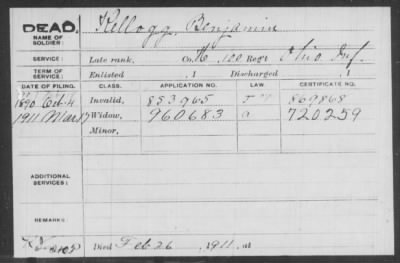 DEAD.
Kellogg, Benjamin
NAME OF
SOLDIER:
SERVICE:
Late rank, Co. K, 120 Reg't Ohio Inf.
TERM OF
SERVICE:
Enlisted , 1 Discharged , 1
DATE OF FILING. CLASS. APPLICATION NO. LAW. CERTIFICATE NO.
1890 Oct. 4 Invalid, 853965 869868
1911 Mar 17 Widow, 960683 a 720259
Minor,
ADDITIONAL
SERVICES:
REMARKS:
Died Feb 26, 1911, at